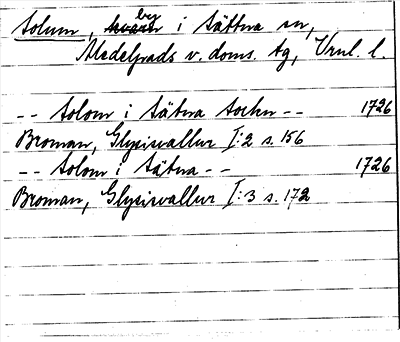 Solum, by i Sättna sn,
Medelpads v. doms. tg, Vrnl. l.
-- Solom i Sätna Sochn -- 1726
Broman, Glysisvallur I:2 s. 156
-- Solom i Sätna -- 1726
Broman, Glysisvallur I:3 s. 172